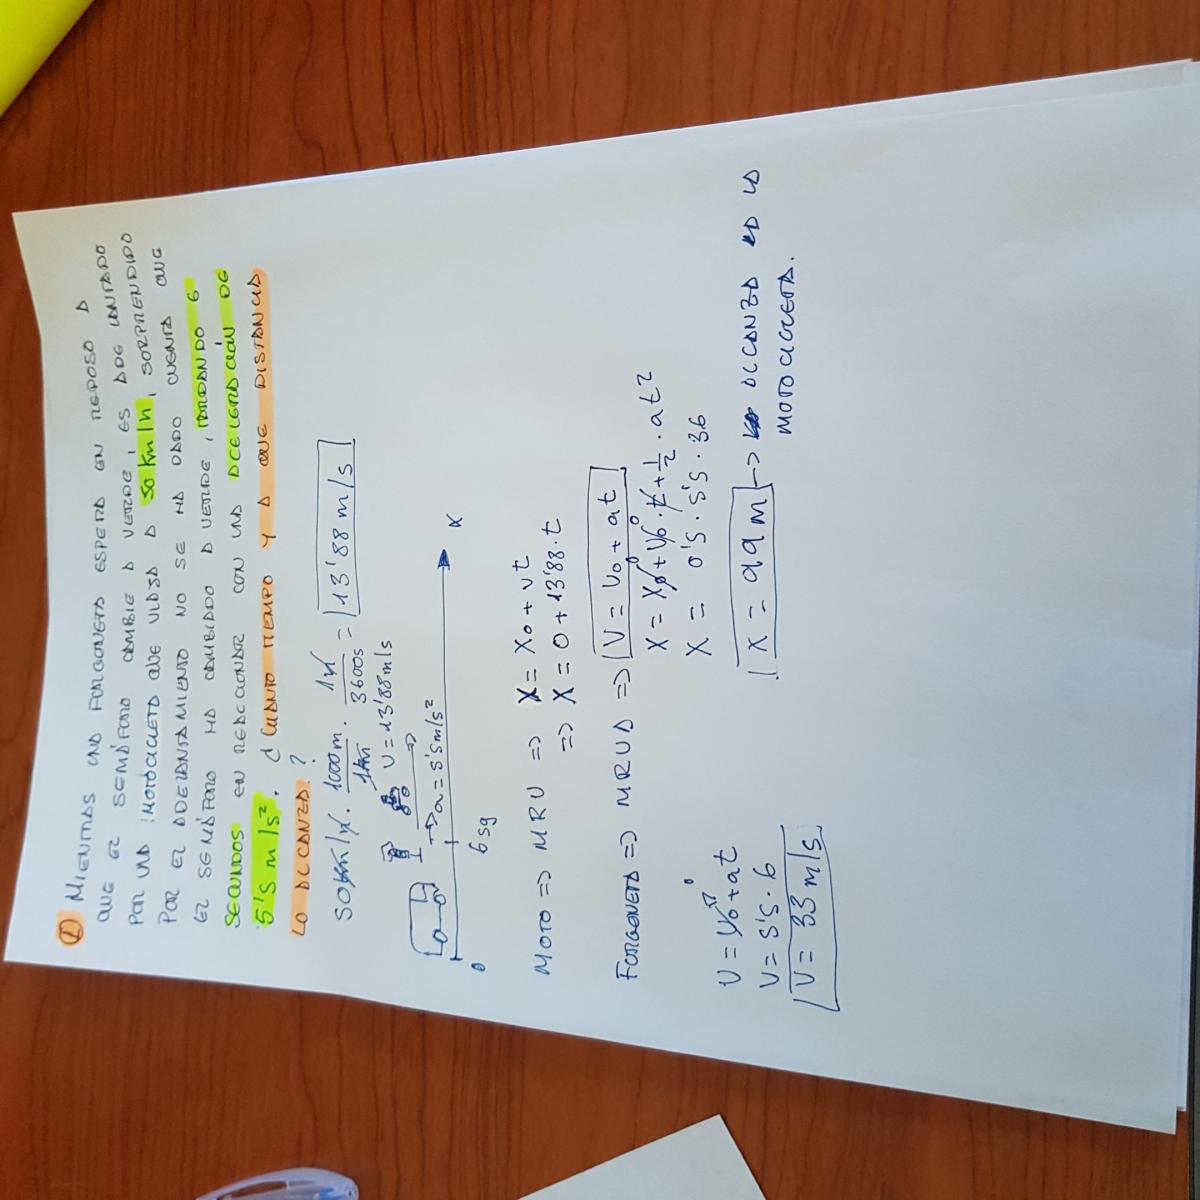 ① MIENTRAS UNA FURGONETA ESPERA EN REPOSO A
QUE EL SEMÁFORO CAMBIE A VERDE, ES ADELANTADO
POR UNA MOTOCICLETA QUE VIAJA A 50 km/h, SORPRENDIDO
POR EL ADELANTAMIENTO NO SE HA DADO CUENTA QUE
EL SEMÁFORO HA CAMBIADO A VERDE, TARDANDO 6
SEGUNDOS EN REACCIONAR CON UNA ACELERACIÓN DE
5'5 m/s². ¿CUANTO TIEMPO Y A QUE DISTANCIA
LO ALCANZA?
50 km/h · 1000m/1km · 1h/3600s = 13'88 m/s
V = 13'88 m/s
→ a = 5'5 m/s²
0 6 sg X
MOTO => MRU => X = X₀ + vt
=> X = 0 + 13'88 · t
FURGONETA => MRUA => V = V₀ + at
X = X₀ + V₀ · t + 1/2 · at²
X = 0'5 · 5'5 · 36
X = 99 M → ALCANZA A LA
MOTOCICLETA.
V = V₀ + at
V = 5'5 · 6
V = 33 m/s